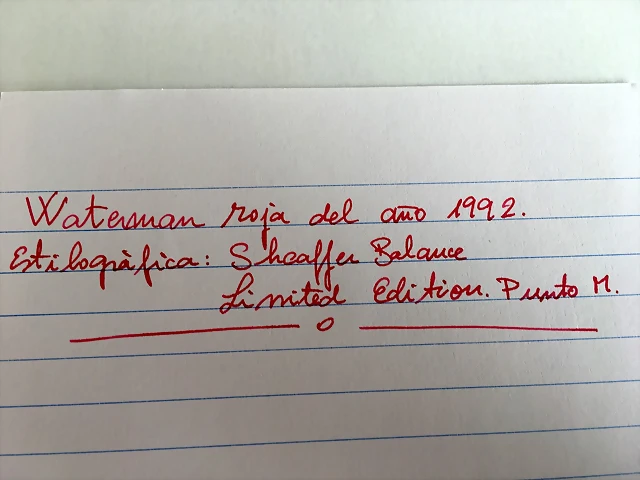 Waterman roja del año 1992.
Estilogràfica: Sheaffer Balance
Limited Edition. Punto M.